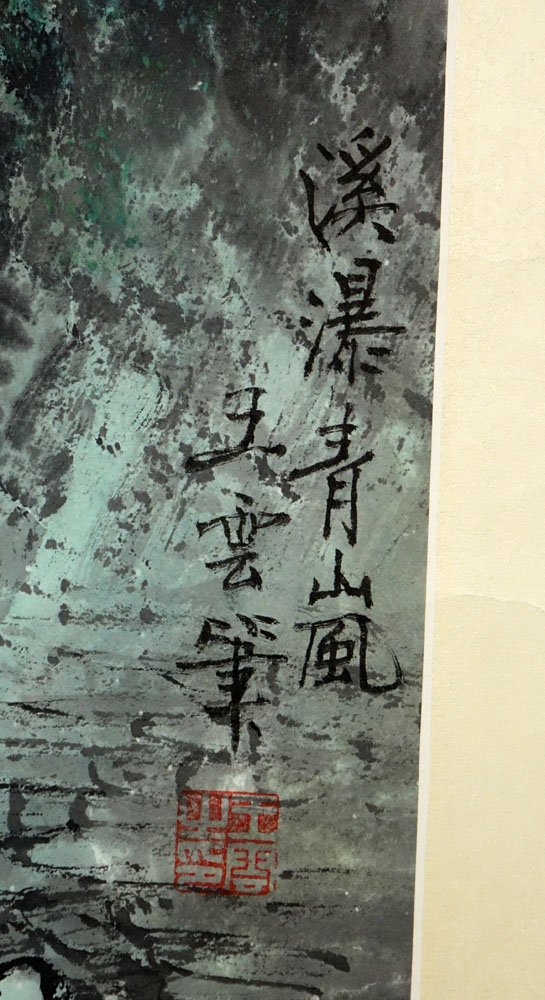 溪瀑青嵐
王雲筆